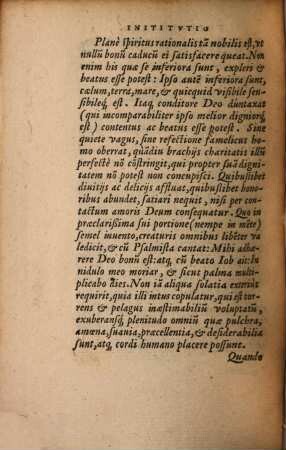 INSTITVTIO
Planè spiritus rationalis tā nobilis est, vt
nullū bonū caducū ei satisfacere queat. Non
enim his quæ se inferiora sunt, expleri &
beatus esse potest: Ipso autē inferiora sunt,
cælum, terra, mare, & quicquid visibile sen-
sibileq́; est. Itaq; conditore Deo duntaxat
(qui incomparabiliter ipso melior digniorq́;
est) contentus ac beatus esse potest. Sine
quiete vagus, sine refectione famelicus ho-
mo oberrat, quādiu brachijs charitatis illū
perfectè nō cōstringit, qui propter suā digni-
tatem nō potest non concupisci. Quibuslibet
diuitijs ac delicijs affluat, quibuslibet hono-
ribus abundet, satiari nequit, nisi per con-
tactum amoris Deum consequatur. Quo in
præclarissima sui portione (nempe in mēte)
semel inuento, creaturis omnibus libēter va
ledicit, & cū Psalmista cantat: Mihi adhæ-
rere Deo bonū est: atq; cū beato Iob ait: In
nidulo meo moriar, & sicut palma multi-
plicabo dies. Non iā aliqua solatia extrin̄
requirit, quia illi intus copulatur, qui est tor-
rens & pelagus inæstimabiliū voluptatū,
exuberansq́; plenitudo omniū quæ pulchra,
amœna, suauia, præcellentia, & desiderabilia
sunt, atq; cordi humano placere possunt.
Quando